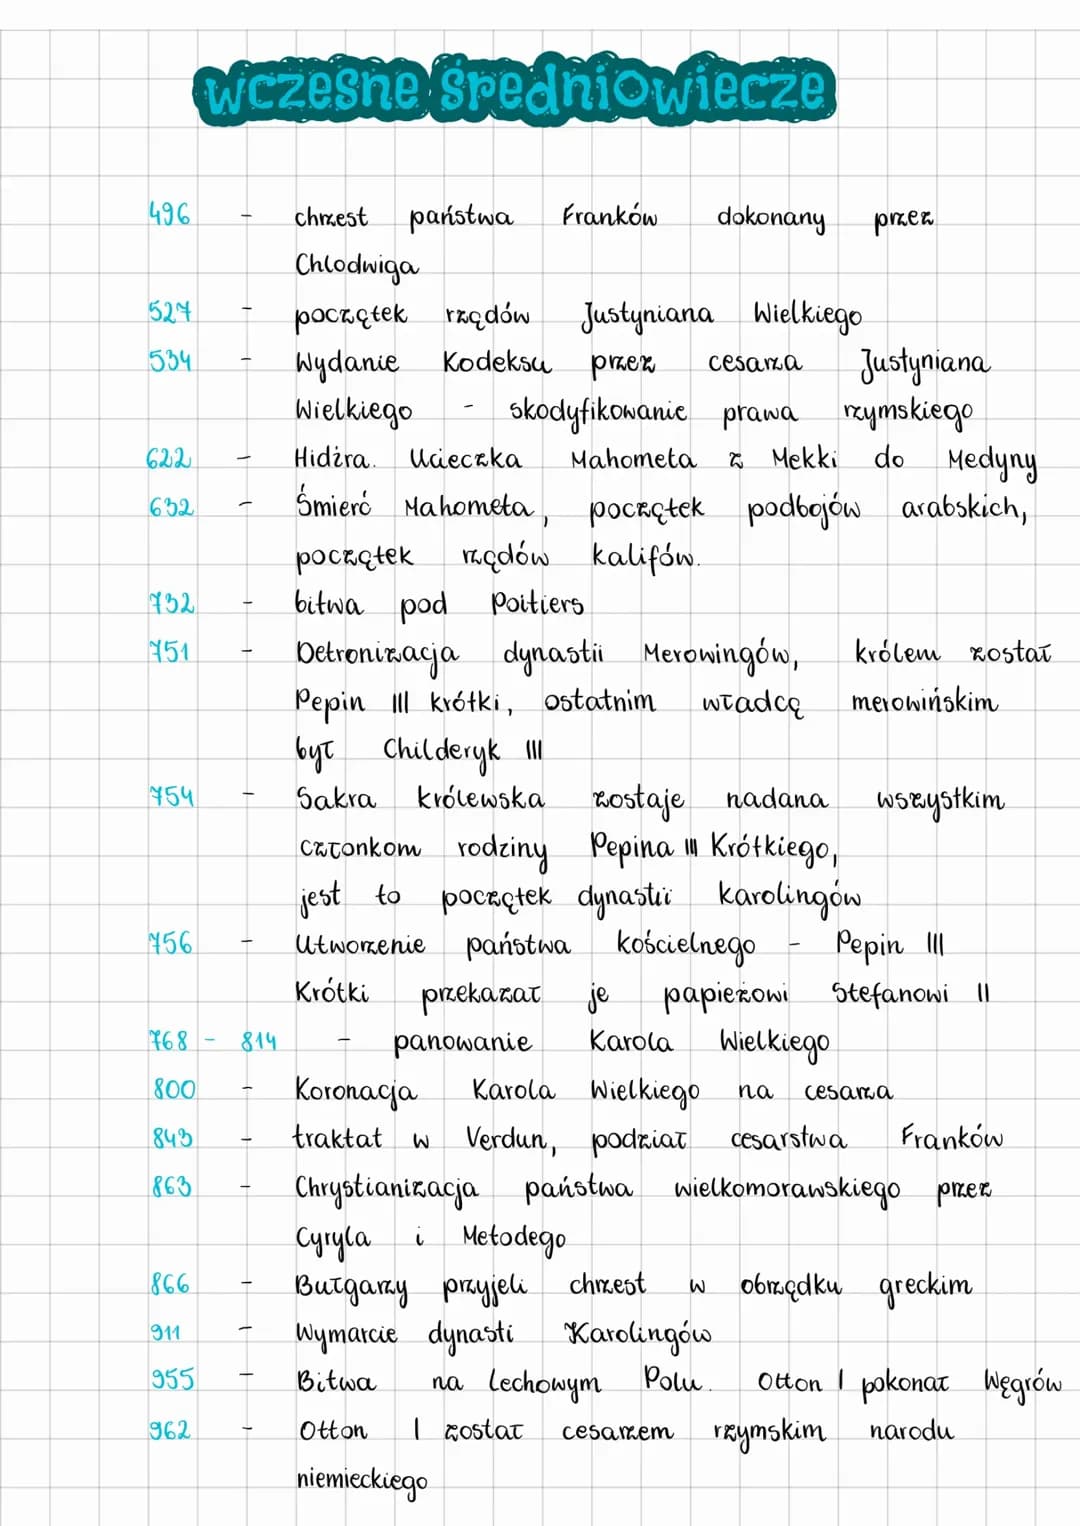 wczesne średniowiecze
496 - chrzest państwa Franków dokonany przez
Chlodwiga
527 - początek rządów Justyniana Wielkiego
534 - Wydanie Kodeksu przez cesarza Justyniana
Wielkiego - skodyfikowanie prawa rzymskiego
622 - Hidżra. Ucieczka Mahometa z Mekki do Medyny
632 - Śmierć Mahometa, początek podbojów arabskich,
początek rządów kalifów.
732 - bitwa pod Poitiers
751 - Detronizacja dynastii Merowingów, królem został
Pepin III krótki, ostatnim władcą merowińskim
był Childeryk III
754 - Sakra królewska zostaje nadana wszystkim
członkom rodziny Pepina III Krótkiego,
jest to początek dynastii karolingów
756 - Utworzenie państwa kościelnego - Pepin III
Krótki przekazał je papieżowi Stefanowi II
768 - 814 - panowanie Karola Wielkiego
800 - Koronacja Karola Wielkiego na cesarza
843 - traktat w Verdun, podział cesarstwa Franków
863 - Chrystianizacja państwa wielkomorawskiego przez
Cyryla i Metodego
866 - Bułgarzy przyjeli chrzest w obrządku greckim
911 - Wymarcie dynasti Karolingów
955 - Bitwa na Lechowym Polu. Otton I pokonał Węgrów
962 - Otton I został cesarzem rzymskim narodu
niemieckiego